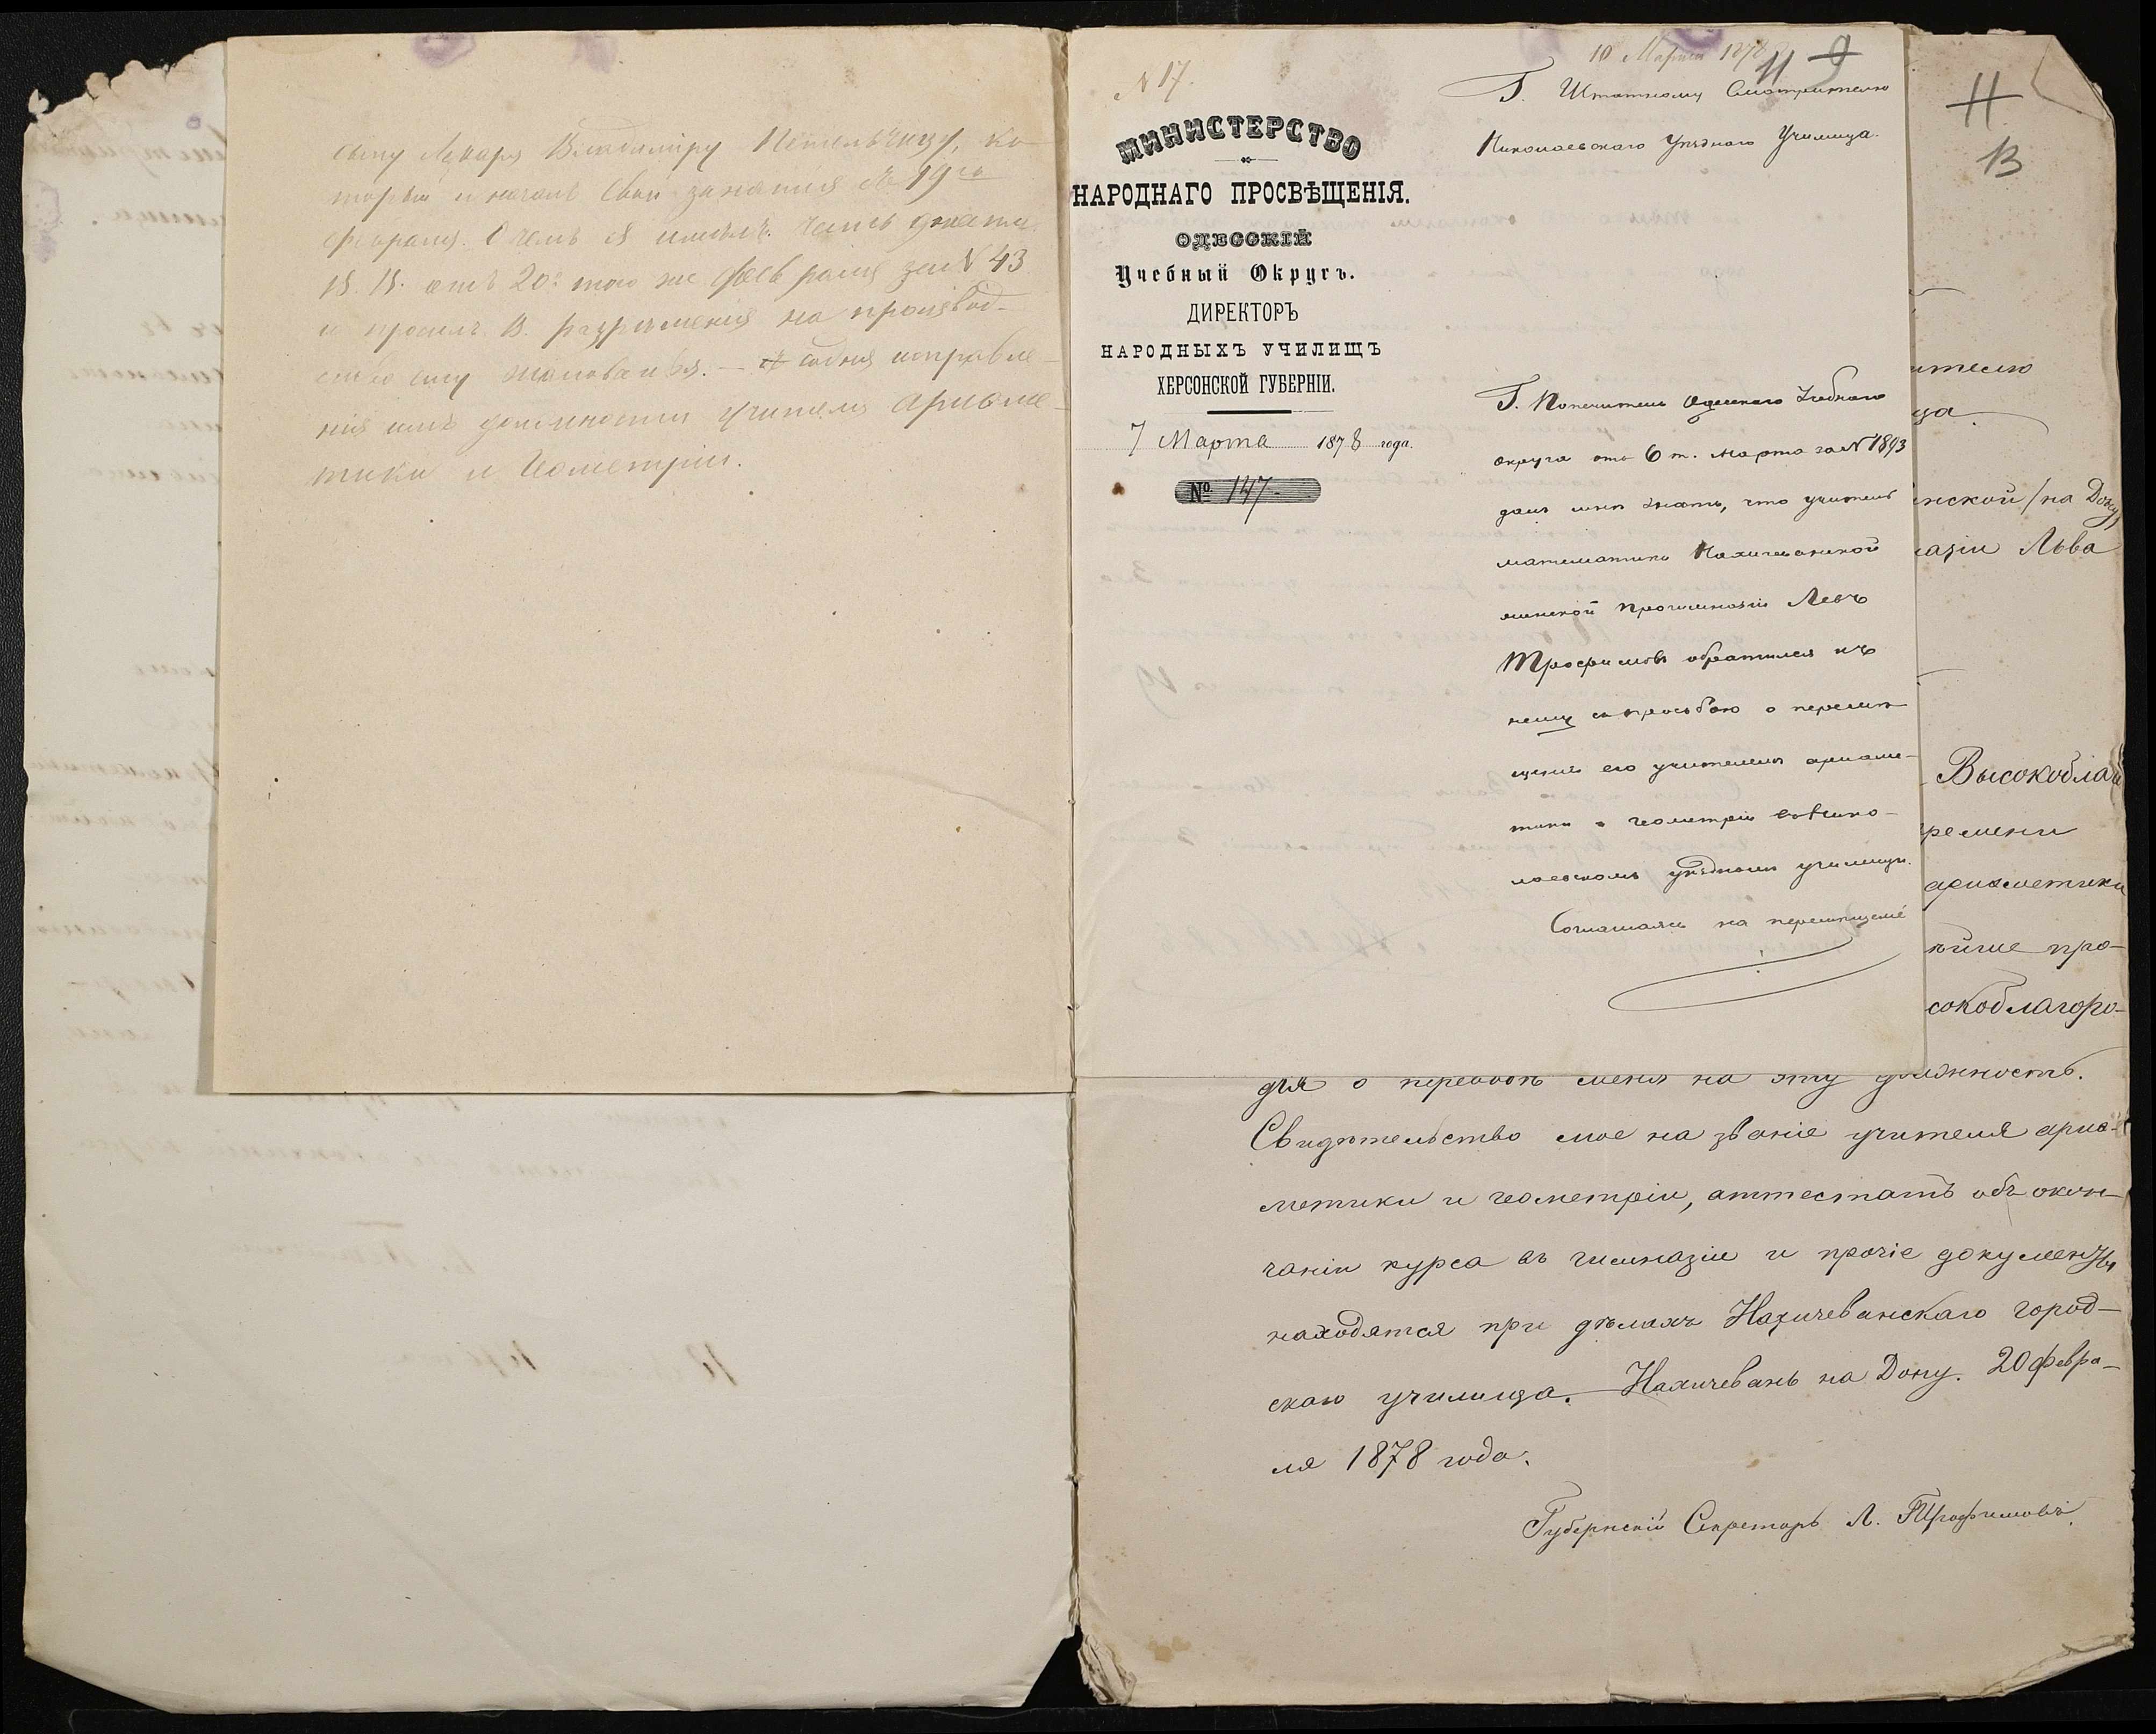 сыну Лекаря Владиміру Петельчицу, ко-
торый и началъ свои занятія съ 19го
февраля. О чемъ я имѣлъ честь донести
В. В. отъ 20го того же февраля за № 43
и просилъ В. разрѣшенія на производ-
ство ему жалованья. — со дня исправле-
нія имъ должности учителя ариѳме-
тики и Геометріи.
№ 17.
МИНИСТЕРСТВО
НАРОДНАГО ПРОСВѢЩЕНІЯ.
ОДЕССКІЙ
Учебный Округъ.
ДИРЕКТОРЪ
НАРОДНЫХЪ УЧИЛИЩЪ
ХЕРСОНСКОЙ ГУБЕРНІИ.
7 Марта 1878 года.
№ 147.
10 Марта 1878
11 9
Г. Штатному Смотрителю
Николаевскаго Уѣзднаго Училища.
Г. Попечитель Одесскаго Учебнаго
округа отъ 6 т. Марта за № 1893
далъ мнѣ знать, что учитель
математики Нахичеванской
женской прогимназіи Левъ
Трофимовъ обратился къ
нему съ просьбою о перемѣ-
щеніи его учителемъ ариѳме-
тики и геометріи въ Нико-
лаевскомъ уѣздномъ училищѣ.
Соглашаясь на перемѣщеніе
11
13
ителю
ща
нской /на Дону/
назіи Льва
Высокоблаг
времени
ариѳметики
йше про-
сокоблагоро-
дія о переводѣ меня на эту должность.
Свидѣтельство мое на званіе учителя ариѳ-
метики и геометріи, аттестатъ объ окон-
чаніи курса въ гимназіи и прочіе документы
находятся при дѣлахъ Нахичеванскаго город-
скаго училища. Нахичевань на Дону. 20 Февра-
ля 1878 года.
Губернскій Секретарь Л. Трофимовъ.